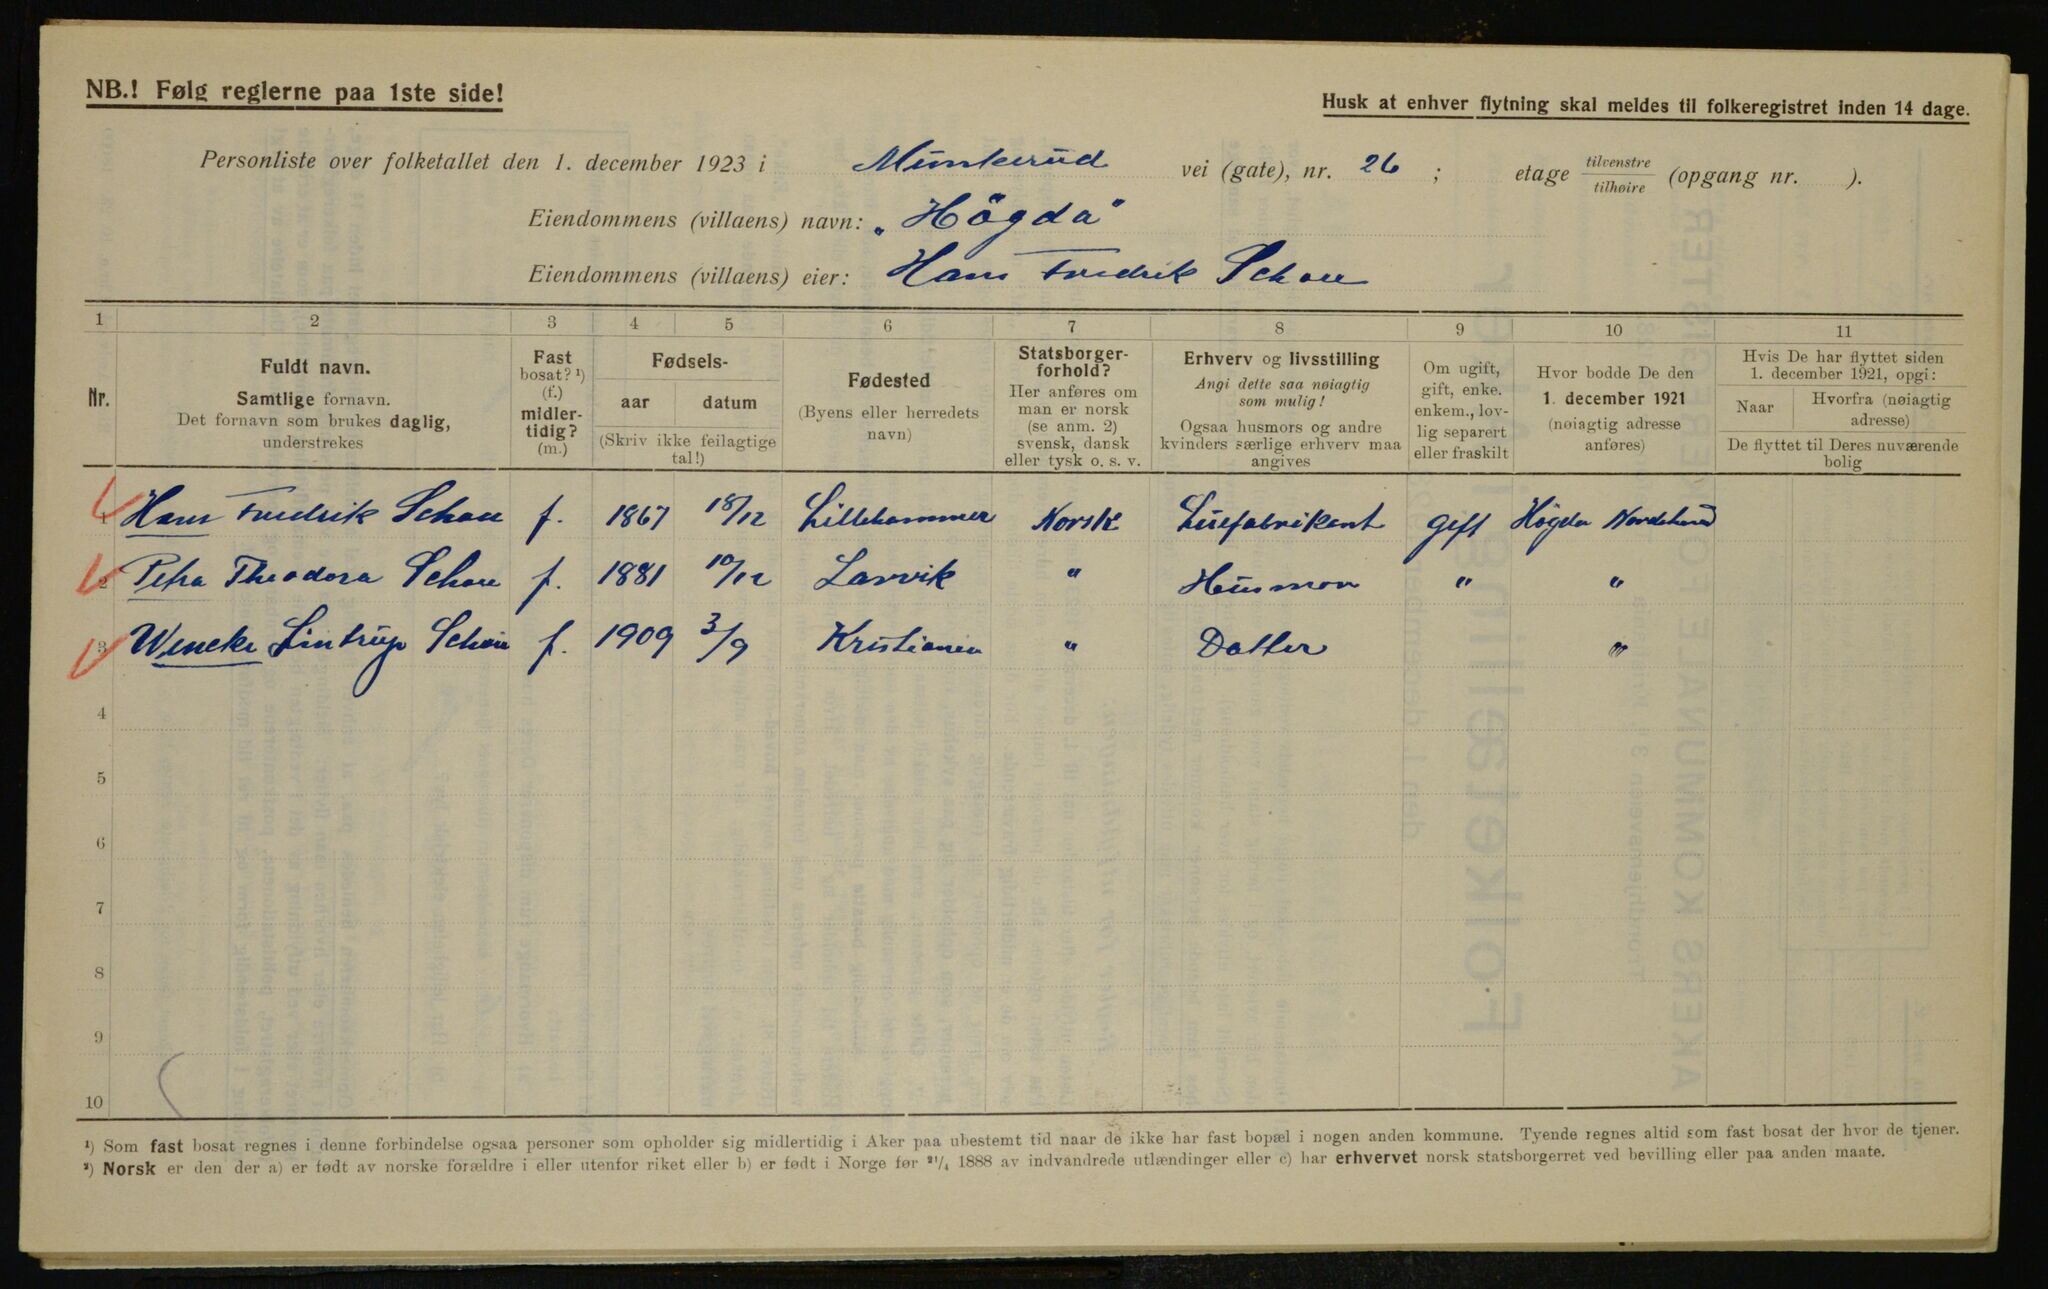 NB.! Følg reglerne paa 1ste side!
Husk at enhver flytning skal meldes til folkeregistret inden 14 dage.
Personliste over folketallet den 1. december 1923 i Munkerud vei (gate), nr. 26 ; etage tilvenstre tilhøire (opgang nr. ).
Eiendommens (villaens) navn: „Högda"
Eiendommens (villaens) eier: Hans Fredrik Schou
1 2 3 4 5 6 7 8 9 10 11
Nr.
Fuldt navn.
Samtlige fornavn.
Det fornavn som brukes daglig,
understrekes
Fast
bosat? ¹)
(f.)
midler-
tidig?
(m.)
Fødsels-
aar datum
(Skriv ikke feilagtige
tal!)
Fødested
(Byens eller herredets
navn)
Statsborger-
forhold?
Her anføres om
man er norsk
(se anm. 2)
svensk, dansk
eller tysk o. s. v.
Erhverv og livsstilling
Angi dette saa nøiagtig
som mulig!
Ogsaa husmors og andre
kvinders særlige erhverv maa
angives
Om ugift,
gift, enke.
enkem., lov-
lig separert
eller fraskilt
Hvor bodde De den
1. december 1921
(nøiagtig adresse
anføres)
Hvis De har flyttet siden
1. december 1921, opgi:
Naar
Hvorfra (nøiagtig
adresse)
De flyttet til Deres nuværende
bolig
1 Hans Fredrik Schou f. 1867 18/12 Lillehammer Norsk Luefabrikant Gift Högda Nordstrand
2 Petra Theodora Schou f. 1881 10/12 Larvik " Husmor " "
3 Wencke Lintrup Schou f. 1909 3/9 Kristiania " Datter "
4
5
6
7
8
9
10
¹) Som fast bosat regnes i denne forbindelse ogsaa personer som opholder sig midlertidig i Aker paa ubestemt tid naar de ikke har fast bopæl i nogen anden kommune. Tyende regnes altid som fast bosat der hvor de tjener.
²) Norsk er den der a) er født av norske forældre i eller utenfor riket eller b) er født i Norge før 21/4 1888 av indvandrede utlændinger eller c) har erhvervet norsk statsborgerret ved bevilling eller paa anden maate.